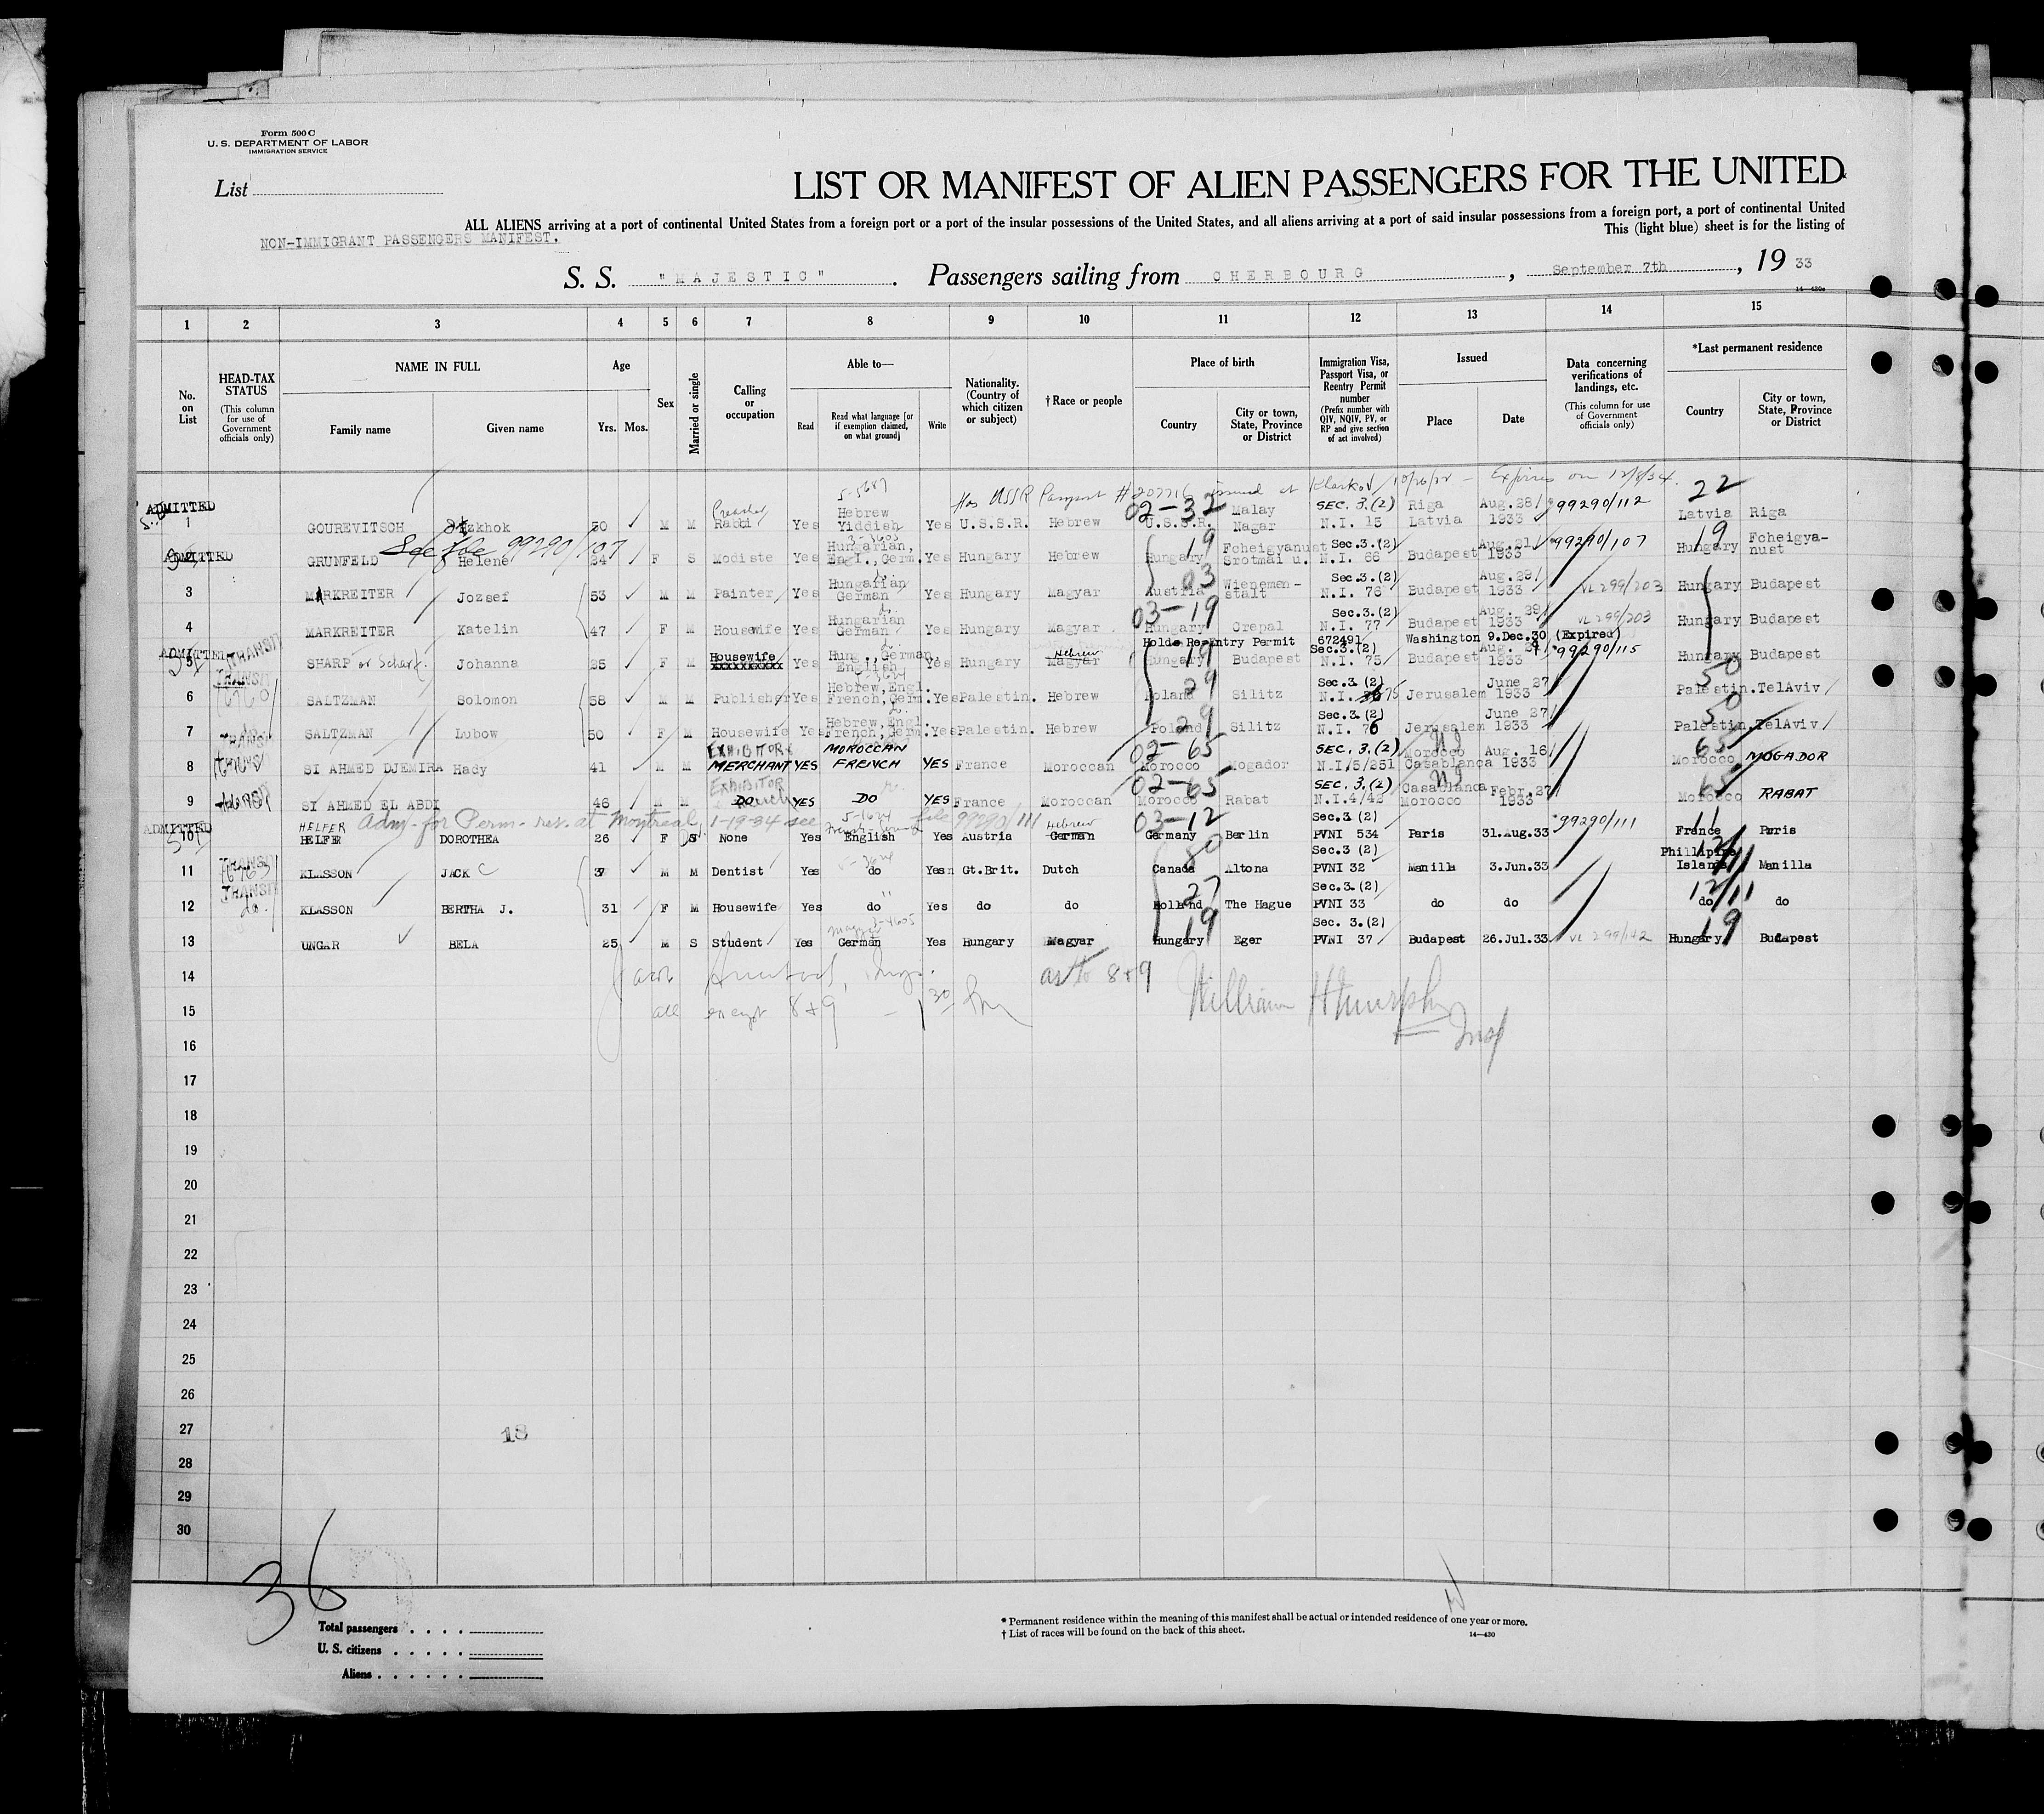 Form 500 C
U. S. DEPARTMENT OF LABOR
IMMIGRATION SERVICE
List
LIST OR MANIFEST OF ALIEN PASSENGERS FOR THE UNITED
ALL ALIENS arriving at a port of continental United States from a foreign port or a port of the insular possessions of the United States, and all aliens arriving at a port of said insular possessions from a foreign port, a port of continental United
NON-IMMIGRANT PASSENGERS MANIFEST.
This (light blue) sheet is for the listing of
S. S. "MAJESTIC". Passengers sailing from CHERBOURG, September 7th, 19 33
14—430
1 2 3 4 5 6 7 8 9 10 11 12 13 14 15
No. on List
HEAD-TAX STATUS (This column for use of Government officials only)
NAME IN FULL
Family name Given name
Age
Yrs. Mos.
Sex
Married or single
Calling or occupation
Able to—
Read
Read what language [or if exemption claimed, on what ground]
Write
Nationality. (Country of which citizen or subject)
†Race or people
Place of birth
Country
City or town, State, Province or District
Immigration Visa, Passport Visa, or Reentry Permit number (Prefix number with QIV, NQIV, PV, or RP and give section of act involved)
Issued
Place Date
Data concerning verifications of landings, etc. (This column for use of Government officials only)
*Last permanent residence
Country
City or town, State, Province or District
Has USSR Passport # issued at Kharkov 10/26/32 – Expires on 12/8/34.
ADMITTED 1 GOUREVITSCH 50 M M Preacher Rabbi Yes Hebrew Yiddish Yes U.S.S.R. Hebrew 02-32 U.S.S.R. Malay Nagar SEC. 3.(2) N.I. 15 Riga Latvia Aug.28/ 1933 99290/112 22 Latvia Riga
See file 99290/107
ADMITTED GRUNFELD Helene 24 F S Modiste Yes Hungarian, Engl., Germ. Yes Hungary Hebrew 19 Hungary Sec.3.(2) N.I. 66 Budapest Aug.21/ 1933 99290/107 19 Hungary Foheigya-nust
3 MARKREITER Jozsef 53 M M Painter Yes Hungarian German Yes Hungary Magyar 03 Austria Wienemen-stalt Sec.3.(2) N.I. 76 Budapest Aug.29/ 1933 VL 299/203 Hungary Budapest
4 MARKREITER Katelin 47 F M Housewife Yes Hungarian German Yes Hungary Magyar 03-19 Hungary Orepal Sec.3.(2) N.I. 77 Budapest Aug. 29/ 1933 VL 299/203 Hungary Budapest
Holds Re-Entry Permit 672491 Washington 9.Dec.30 (Expired)
ADMITTED 5 TRANSIT SHARP or Scharf. Johanna 25 F M Housewife xxxxxxxxxx Yes Hung., German, English Yes Hungary Hebrew Magyar 19 Hungary Budapest Sec.3.(2) N.I. 75 Budapest 1933 99290/115 Hungary Budapest
6 TRANSIT SALTZMAN Solomon 58 M M Publisher Yes Hebrew, Engl. French, Germ. Yes Palestin. Hebrew 29 Poland Silitz Sec.3.(2) N.I. 75 Jerusalem June 27/ 1933 50 Palestin. TelAviv
7 TRANSIT SALTZMAN Lubow 50 F M Housewife Yes Hebrew, Engl. French, Germ. Yes Palestin. Hebrew 29 Poland Silitz Sec.3.(2) N.I. 76 Jerusalem June 27/ 1933 50 Palestin. TelAviv
8 SI AHMED DJEMIRA Hady 41 M M EXHIBITOR MERCHANT YES MOROCCAN FRENCH YES France Moroccan 02-65 Morocco Mogador SEC. 3.(2) N.I/5/251 Morocco Casablanca Aug. 16/ 1933 65 Morocco MOGADOR
9 SI AHMED EL ABDI 46 M M EXHIBITOR DO YES DO YES France Moroccan 02-65 Morocco Rabat SEC. 3.(2) N.I.4/42 Casablanca Morocco Febr.27/ 1933 65 Morocco RABAT
Adm. for Perm. res. at Montreal 1-19-34 see file 99290/111
ADMITTED 10 HELFER HELFER DOROTHEA 26 F S None Yes English Yes Austria Hebrew German 03-12 Germany Berlin Sec.3 (2) PVNI 534 Paris 31.Aug.33 99290/111 11 France Paris
11 TRANSIT KLASSON JACK C 37 M M Dentist Yes do Yes Gt.Brit. Dutch 80 Canada Altona Sec.3 (2) PVNI 32 Manilla 3.Jun.33 Phillipine Islands Manilla
12 TRANSIT do. KLASSON BERTHA J. 31 F M Housewife Yes do Yes do do 27 Holland The Hague Sec.3.(2) PVNI 33 do do 12/11 do do
13 UNGAR BELA 25 M S Student Yes Magyar German Yes Hungary Magyar 19 Hungary Eger Sec. 3.(2) PVNI 37 Budapest 26.Jul.33 VL 299/142 19 Hungary Budapest
14 Jacob as to 8+9 William H Murphy
15 all except 8+9 – 1 30 Pm Insp
16
17
18
19
20
21
22
23
24
25
26
27
18
28
29
30
36
Total passengers
U. S. citizens
Aliens
* Permanent residence within the meaning of this manifest shall be actual or intended residence of one year or more.
† List of races will be found on the back of this sheet.
14—430